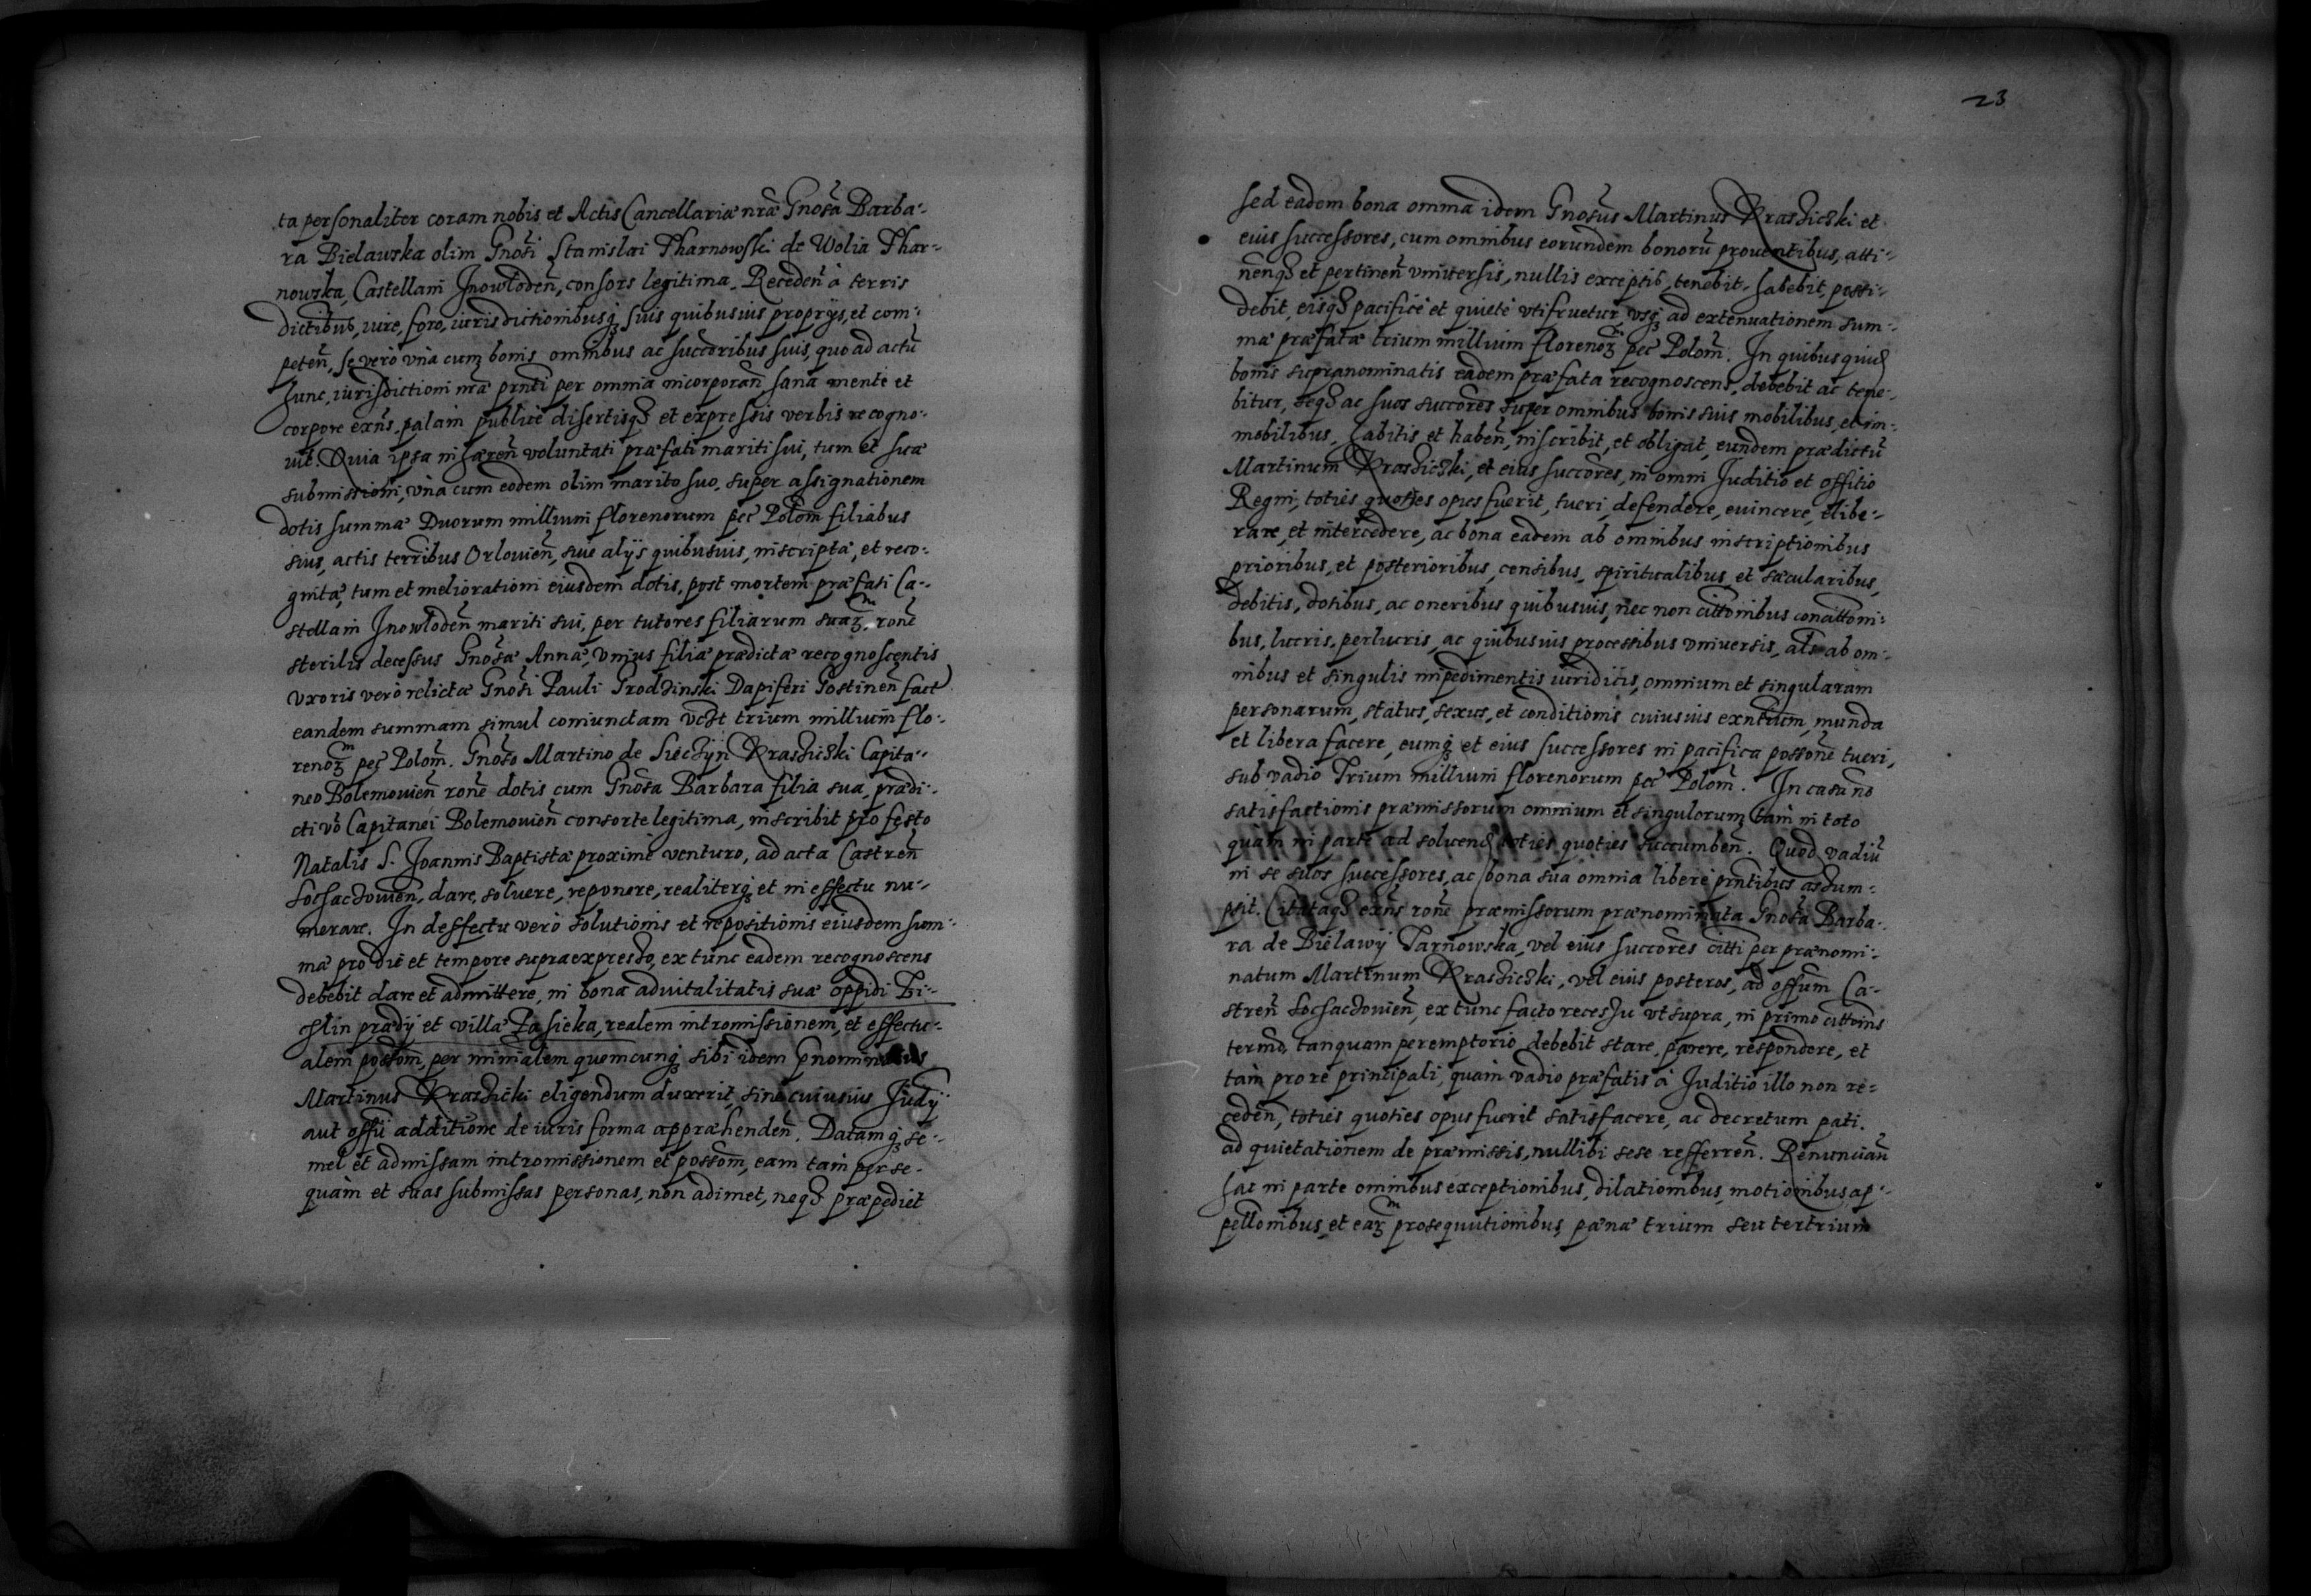 ta personaliter coram nobis et Actis Cancellariæ nr̃æ Gnosã Barba-
ra Bielawska olim Gnosi Stanislai Tharnowski de Wolia Thar-
nowska, Castellani Jnowlodeñ, consors legitima. Recedeñ à terris
dictibus, iure, foro, iurisdictionibusq suis quibusuis proprijs, et com-
peteñ, se verò vnà cum bonis omnibus ac succoribus suis, quo ad actũ
hunc, iurisdictioni nr̃æ pr̃nti per omnia incorporañ sana mente et
corpore exñs, palam publicè disertisq et expressis verbis recogno-
uit. Quia ipsa inhæreñ voluntati præfati mariti sui, tum et suæ
submissioni, vnà cum eodem olim marito suo, super assignationem
dotis summæ Duorum millium florenorum pec Polom filiabus
suis, actis terribus Orlouieñ, siue alijs quibusuis, inscriptæ, et reco-
gnitæ, tum et meliorationi eiusdem dotis, post mortem præfati Ca-
stellani Jnowlodeñ mariti sui, per tutores filiarum suarꝫ, rone
sterilis decessus Gnosæ Annæ, vnius filiæ prædictæ recognoscentis
vxoris verò relictæ Gnosi Pauli Grodzinski Dapiferi Gostineñ fact
eandem summam simul coniunctam vdzt trium millium flo-
renorꝫ pec Polom. Gnoso Martino de Siectzyn Krasziczki Capita-
neo Bolemouieñ rone dotis cum Gnosa Barbara filia sua, prædi-
cti vo Capitanei Bolemouieñ consorte legitima, inscribit pro festo
Natalis S. Joannis Baptistæ proximè venturo, ad acta Castreñ
Sochaczouieñ, dare, soluere, reponere, realiterq et in effectu nu-
merare. In deffectu verò solutionis et repositionis eiusdem sum-
mæ pro die et tempore supraexpresso, ex tunc eadem recognoscens
debebit dare et admittere, in bona aduitalitatis suæ oppidi Bi-
chlin prædij et villæ Pasieka, realem intromissionem, et effectu-
alem possom, per minialem quemcunq sibi idem p̃nominatus
Martinus Krasicki eligendum duxerit, sine cuiusuis Judij
aut offij additione de iuris forma appræhendeñ. Datamq se-
mel et admissam intromissionem et possom, eam tam per se
quàm et suas submissas personas, non adimet, neq præpediet
23
sed eadem bona omnia idem Gnosus Martinus Krasziczki et
eius successores, cum omnibus eorundem bonorũ prouentibus, atti-
nenq et pertineñ vniuersis, nullis exceptis, tenebit, habebit, possi-
debit, eisq pacificè et quietè vtifruetur, vsq ad extenuationem sum-
mæ præfatæ trium millium florenorꝫ pec Polom. In quibusquid
bonis supranominatis eadem præfata recognoscens, debebit ac tene-
bitur, seq ac suos succores super omnibus bonis suis mobilibus, et im-
mobilibus, habitis et habeñ, inscribit, et obligat, eundem prædictũ
Martinum Krasziczki, et eius succores, in omni Juditio et offitio
Regni, toties quoties opus fuerit, tueri, defendere, euincere, elibe-
rare, et intercedere, ac bona eadem ab omnibus inscriptionibus
prioribus, et posterioribus, censibus, spiritualibus et sæcularibus,
debitis, dotibus, ac oneribus quibusuis, nec non cittonibus concittoni-
bus, lucris, perlucris, ac quibusuis processibus vniuersis, als ab om-
nibus et singulis impedimentis iuridicis, omnium et singularum
personarum, status, sexus, et conditionis cuiusuis exntium, munda
et libera facere, eumq et eius successores in pacifica possone tueri,
sub vadio Trium millium florenorum pec Polom. In casu no
satisfactionis præmissorum omnium et singulorum tàm in toto
quàm in parte ad soluend toties quoties succumbeñ. Quod vadiũ
in se suos successores, ac bona sua omnia libere pr̃ntibus assum-
psit. Citataq exñs rone præmissorum prænominata Gnosa Barba-
ra de Bielawij Tarnowska, vel eius succores citti per prænomi-
natum Martinum Krasziczki, vel eius posteros, ad offum Ca-
streñ Sochaczouieñ, ex tunc facto recessu vt supra, in primo cittonis
termo, tanquam peremptorio debebit stare, parere, respondere, et
tàm pro re principali, quàm vadio præfatis à Juditio illo non re-
cedeñ, toties quoties opus fuerit satisfacere, ac decretum pati.
ad quietationem de præmissis, nullibi sese refferreñ. Renunciañ
hac in parte omnibus exceptionibus, dilationibus, motionibus, ap-
pellonibus, et earꝫ prosequutionibus, pæna trium seu tertrium